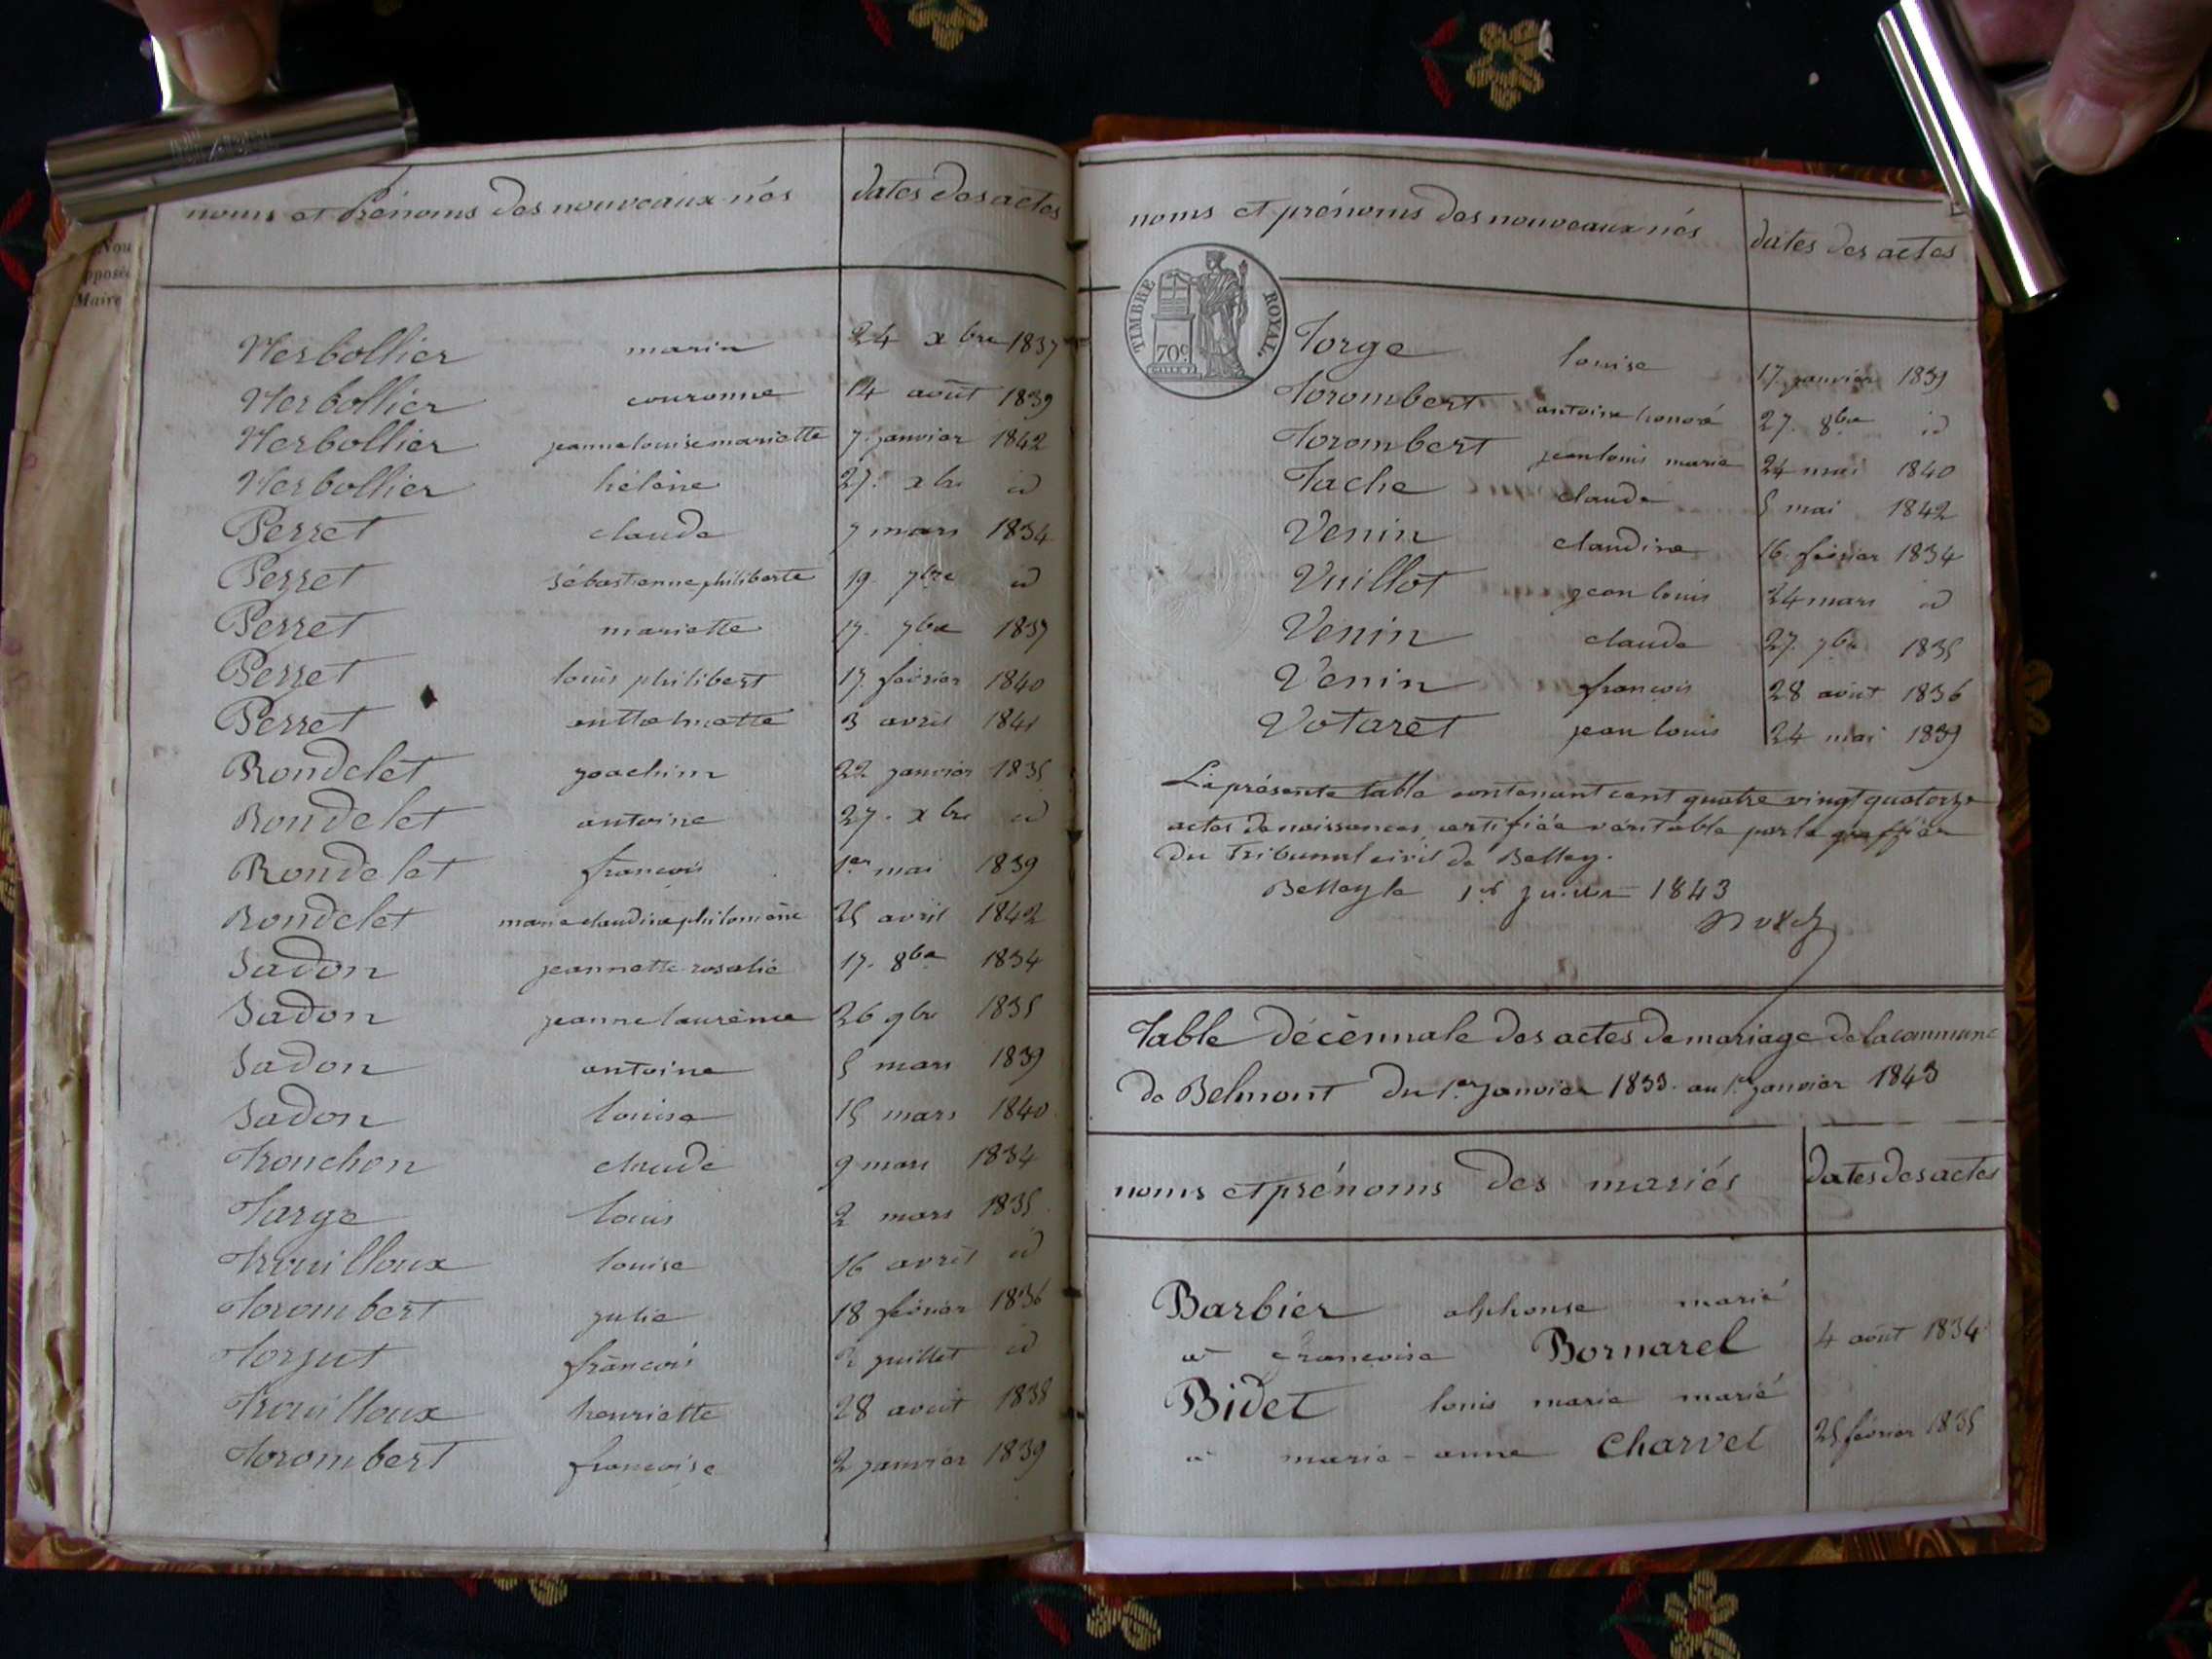 noms et prénoms des nouveaux nés dates des actes
Nou
pposée
Maire
Herbollier marin 24 xbre 1837
Herbollier couronne 14 août 1839
Herbollier jeanne louise mariette 7. janvier 1842
Herbollier hélène 27. xbre id
Perret claude 7 mars 1834
Perret sébastienne philiberte 19. 7bre id
Perret mariette 17. 7bre 1837
Perret louis philibert 17. février 1840
Perret anthelmette 3 avril 1841
Rondelet joachim 22 janvier 1835
Rondelet antoine 27. xbre id
Rondelet francois 1er mai 1839
Rondelet marie claudine philomène 25 avril 1842
Sadon jeannette rosalie 17. 8bre 1834
Sadon jeanne laurence 26 9bre 1835
Sadon antoine 5 mars 1839
Sadon louise 15 mars 1840
Tronchon claude 9 mars 1834
Targe louis 2 mars 1835
Trouilloux louise 16 avril id
Torombert julie 18 février 1836
Torjut francois 2 juillet id
Trouilloux henriette 28 août 1838
Torombert francoise 2 janvier 1839
noms et prénoms des nouveaux nés dates des actes
TIMBRE ROYAL.
70c.
Torge louise 17. janvier 1839
Torombert antoine honoré 27. 8bre id
Torombert jean louis marie 24 mai 1840
Tache claude 5 mai 1842
Venin claudine 16. février 1834
Vuillot jean louis 24 mars id
Venin claude 27. 7bre 1835
Venin françois 28 août 1836
Votaret jean louis 24 mai 1839
La présente table contenant cent quatre vingt quatorze
actes de naissances, certifiée véritable par le greffier
du Tribunal civil de Belley.
Belley le 1er 1843
Table décènnale des actes de mariage de la commune
de Belmont du 1.er Janvier 1833. au 1.er janvier 1843
noms et prénoms des mariés dates des actes
Barbier alphonse marié
à francoise Bornarel 4 août 1834
Bidet louis marie marié
à marie-anne Charvet 25 février 1835